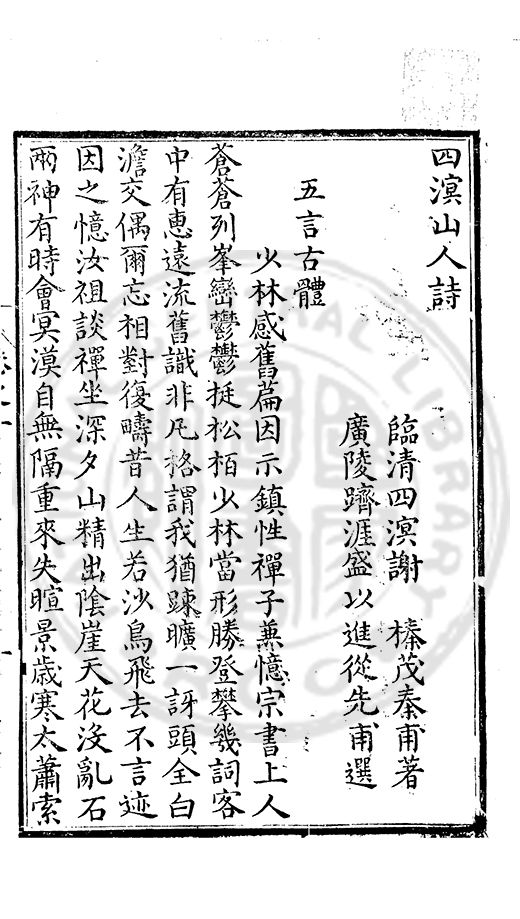 四溟山人詩
臨清四溟謝 榛茂秦甫著
廣陵躋涯盛以進從先甫選
五言古體
少林感舊篇因示鎮性禪子兼憶宗書上人
蒼蒼列峯巒鬱鬱挺松栢少林當形勝登攀幾詞客
中有惠遠流舊識非凡格謂我猶踈曠一訝頭全白
澹交偶爾忘相對復疇昔人生若沙鳥飛去不言迹
因之憶汝祖談禪坐深夕山精出陰崖天花沒亂石
兩神有時會冥漠自無隔重來失暄景歲寒太蕭索